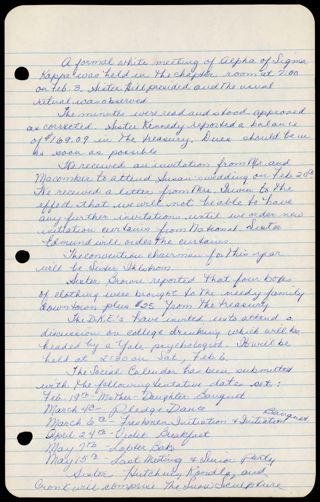 A formal white meeting of Alpha of Sigma
Kappa was held in the chapter room at 7:00
on Feb. 3. Sister Hill presided and the usual
ritual was observed.
The minutes were read and stood approved
as corrected. Sister Kennedy reported a balance
of $169.09 in the treasury. Dues should be in
as soon as possible.
We received an invitation from Mr. and
Macomber to attend Susan's wedding on Feb 20th
We received a letter from Mrs. to the
effect that we will not be able to have
any further invitations until we order new
initiation curtains from National. Sister
Edmund will order the curtains.
The convention chairman for this year
will be Sister
Sister Brown reported that four boxes
of clothing were brought to the needy family
downtown plus $25 from the treasury.
The D.K.E.'s have invited us to attend a
discussion on college drinking which will be
headed by a Yale psychologist. It will be
held at 2:30 on Sat, Feb 6.
The Social Calendar has been submitted
with the following tentative dates set:
Feb. 19th - Mother-Daughter Banquet
March 4th - Pledge Dance
March 6th - Freshmen Initiation & Initiation Banquet
April 24th - Violet Breakfast
May 7th - Lobster Bake
May 15th - Last Meeting & Senior Party
Sisters Hutchins, and
will comprise the Snow Sculpture